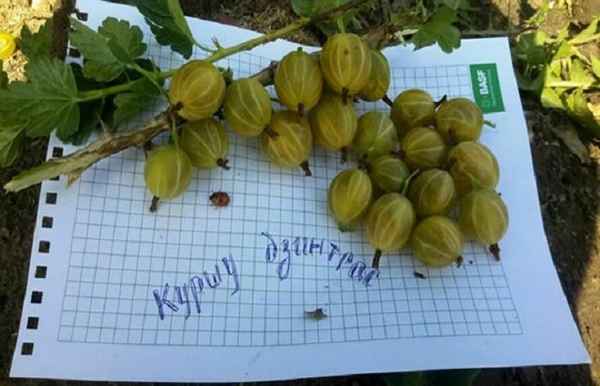 BASF
Куршу дзинтрас